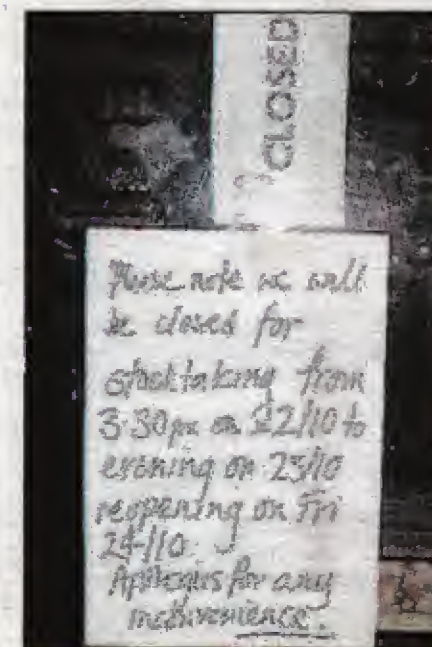 CLOSED
Please note we will
be closed for
stocktaking from
3.30pm on 22/10 to
evening on 23/10
reopening on Fri
24/10
Apologies for any
inconvenience.